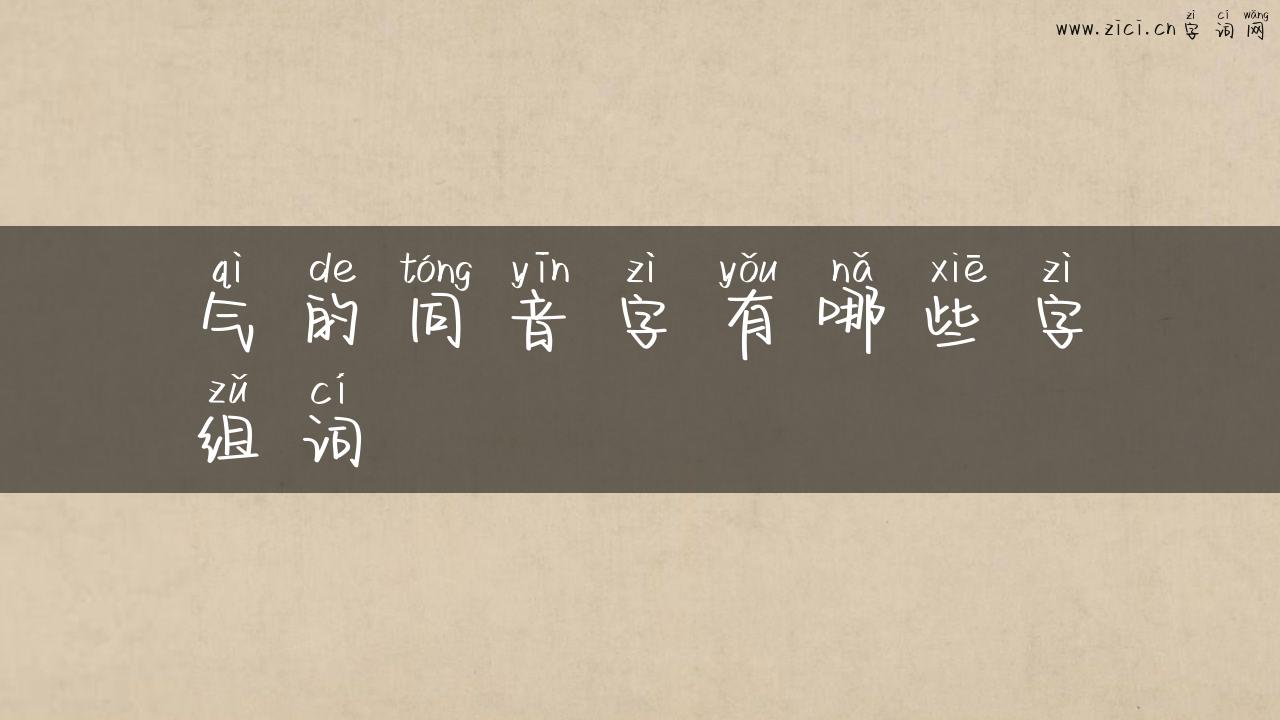 zì cí wǎng
www.zici.cn 字词网
qì de tóng yīn zì yǒu nǎ xiē zì
气的同音字有哪些字
zǔ cí
组词